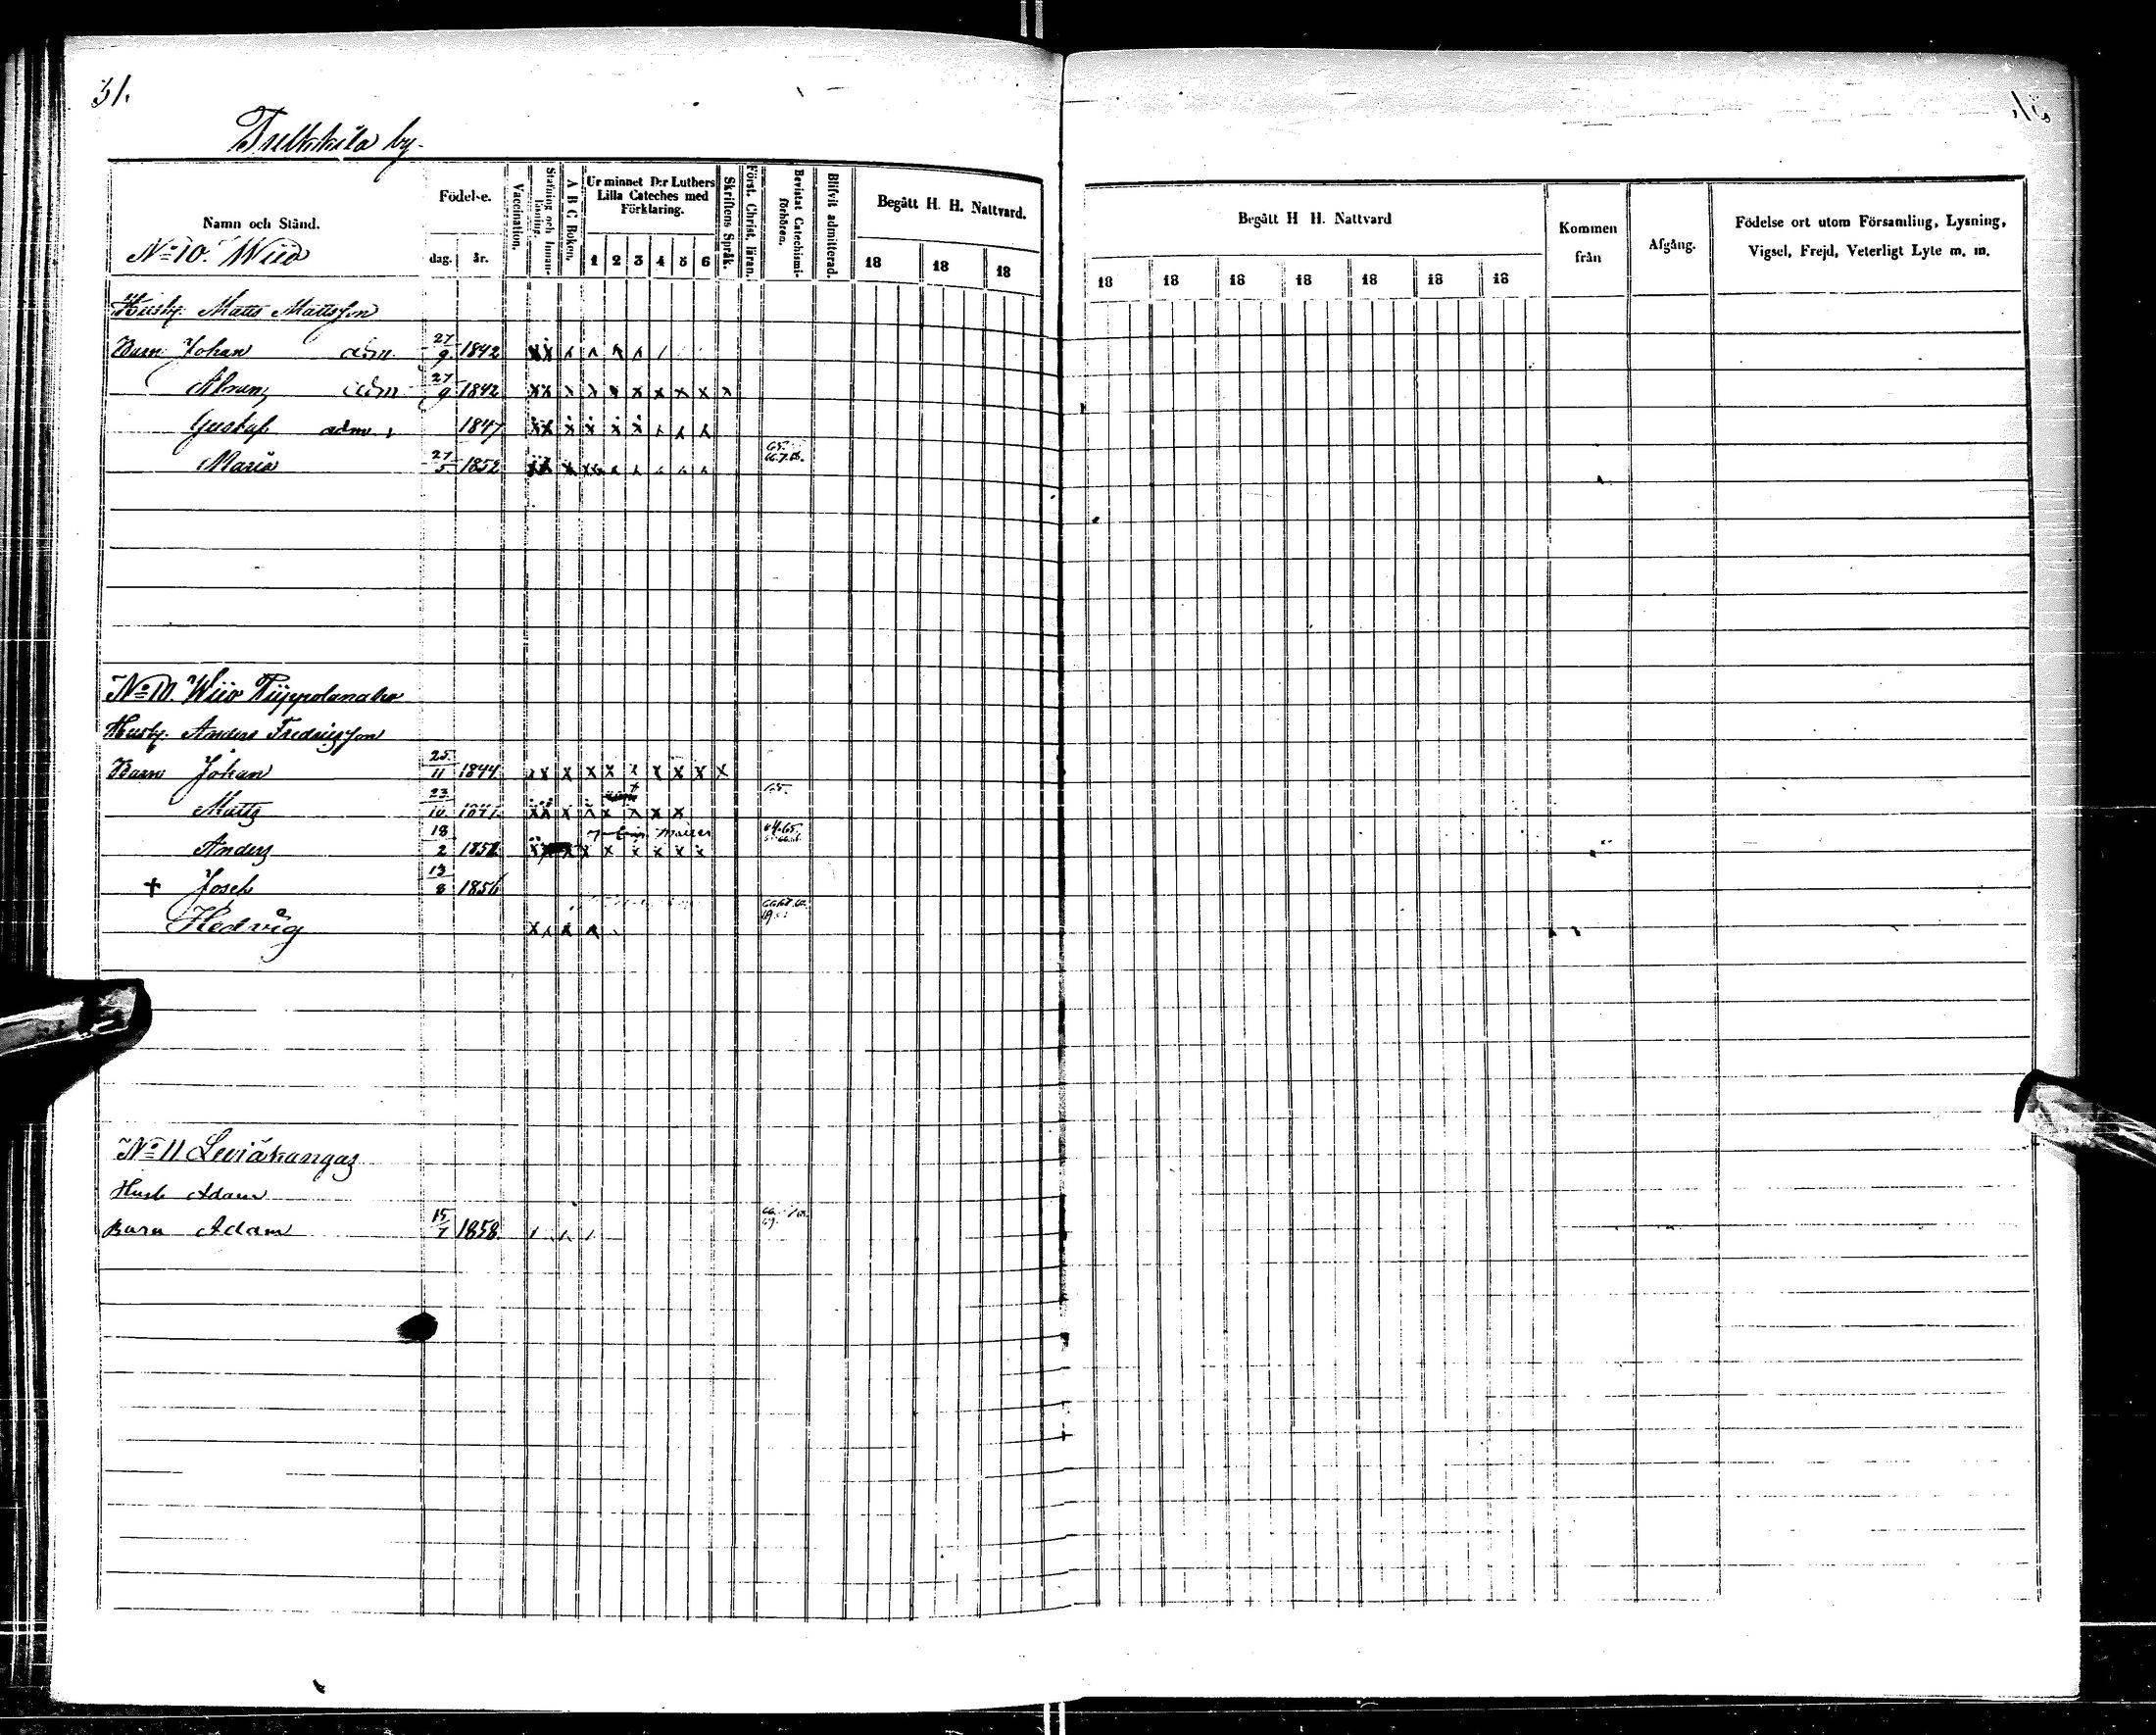 51.
Tulkkila by.
Namn och Stånd.
Födelse.
dag.
år.
Vaccination.
Stafning och Innan-läsning.
A B C Boken.
Ur minnet D:r Luthers
Lilla Cateches med
Förklaring.
1 2 3 4 5 6
Skriftens Språk.
Först. Christ. läran.
Bevistat Catechismi-förhören.
Blifvit admitterad.
Begått H. H. Nattvard.
18 18 18
Begått H H. Nattvard
18 18 18 18 18 18 18
Kommen
från
Afgång.
Födelse ort utom Församling, Lysning,
Vigsel, Frejd, Veterligt Lyte m. m.
No 10. Wiio
Husb. Matts Mattsson
Barn Johan adm. 27/9 1842 xx x x x x
Abram adm 27/9 1842 xx x x x x x x x x
Gustaf adm. 1847 xx x x x x x x x
Maria 27/5 1852 xx x xx x x x x x
No 10. Wiio
Husb. Anders Fredrigsson
Barn Johan 25/11 1844 xx x x x x x x x x
Matts 23/10 65. xx x x x x x x
Anders 18/2 xx x x x x x x x
+ Josef 13/8 1856
Hedvig xx x x
No 11 Leviäkangas
Husb Adam
Barn Adam 15/7 1858